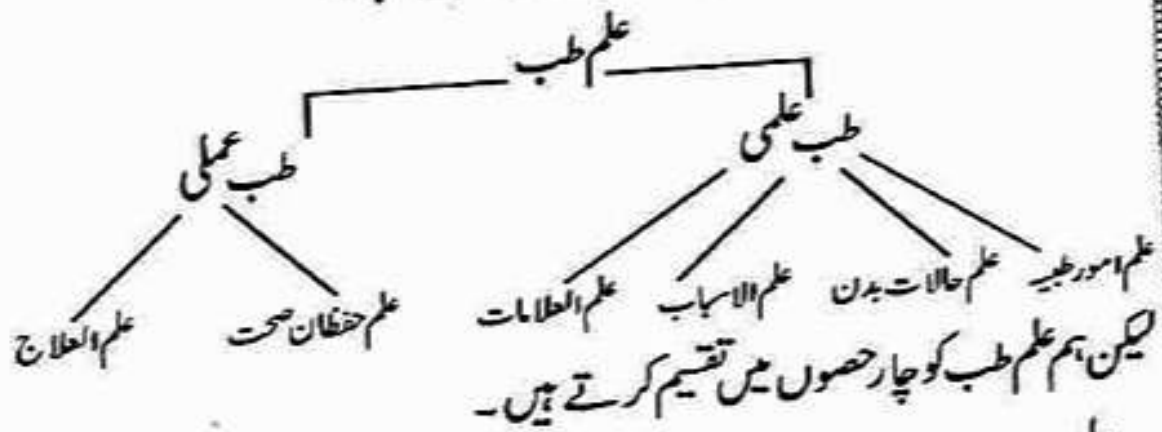 علم طب
طب علمی طب عملی
علم امور طبیہ علم حالات بدن علم الاسباب علم العلامات علم حفظان صحت علم العلاج
لیکن ہم علم طب کو چار حصوں میں تقسیم کرتے ہیں۔